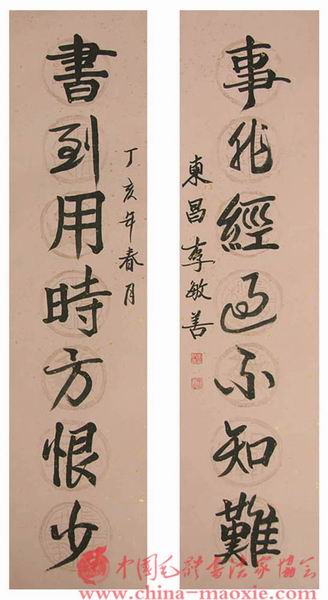 書到用時方恨少
丁亥年春月
事非經過不知難
東昌李敏善
中国毛體書法家協会
www.china-maoxie.com